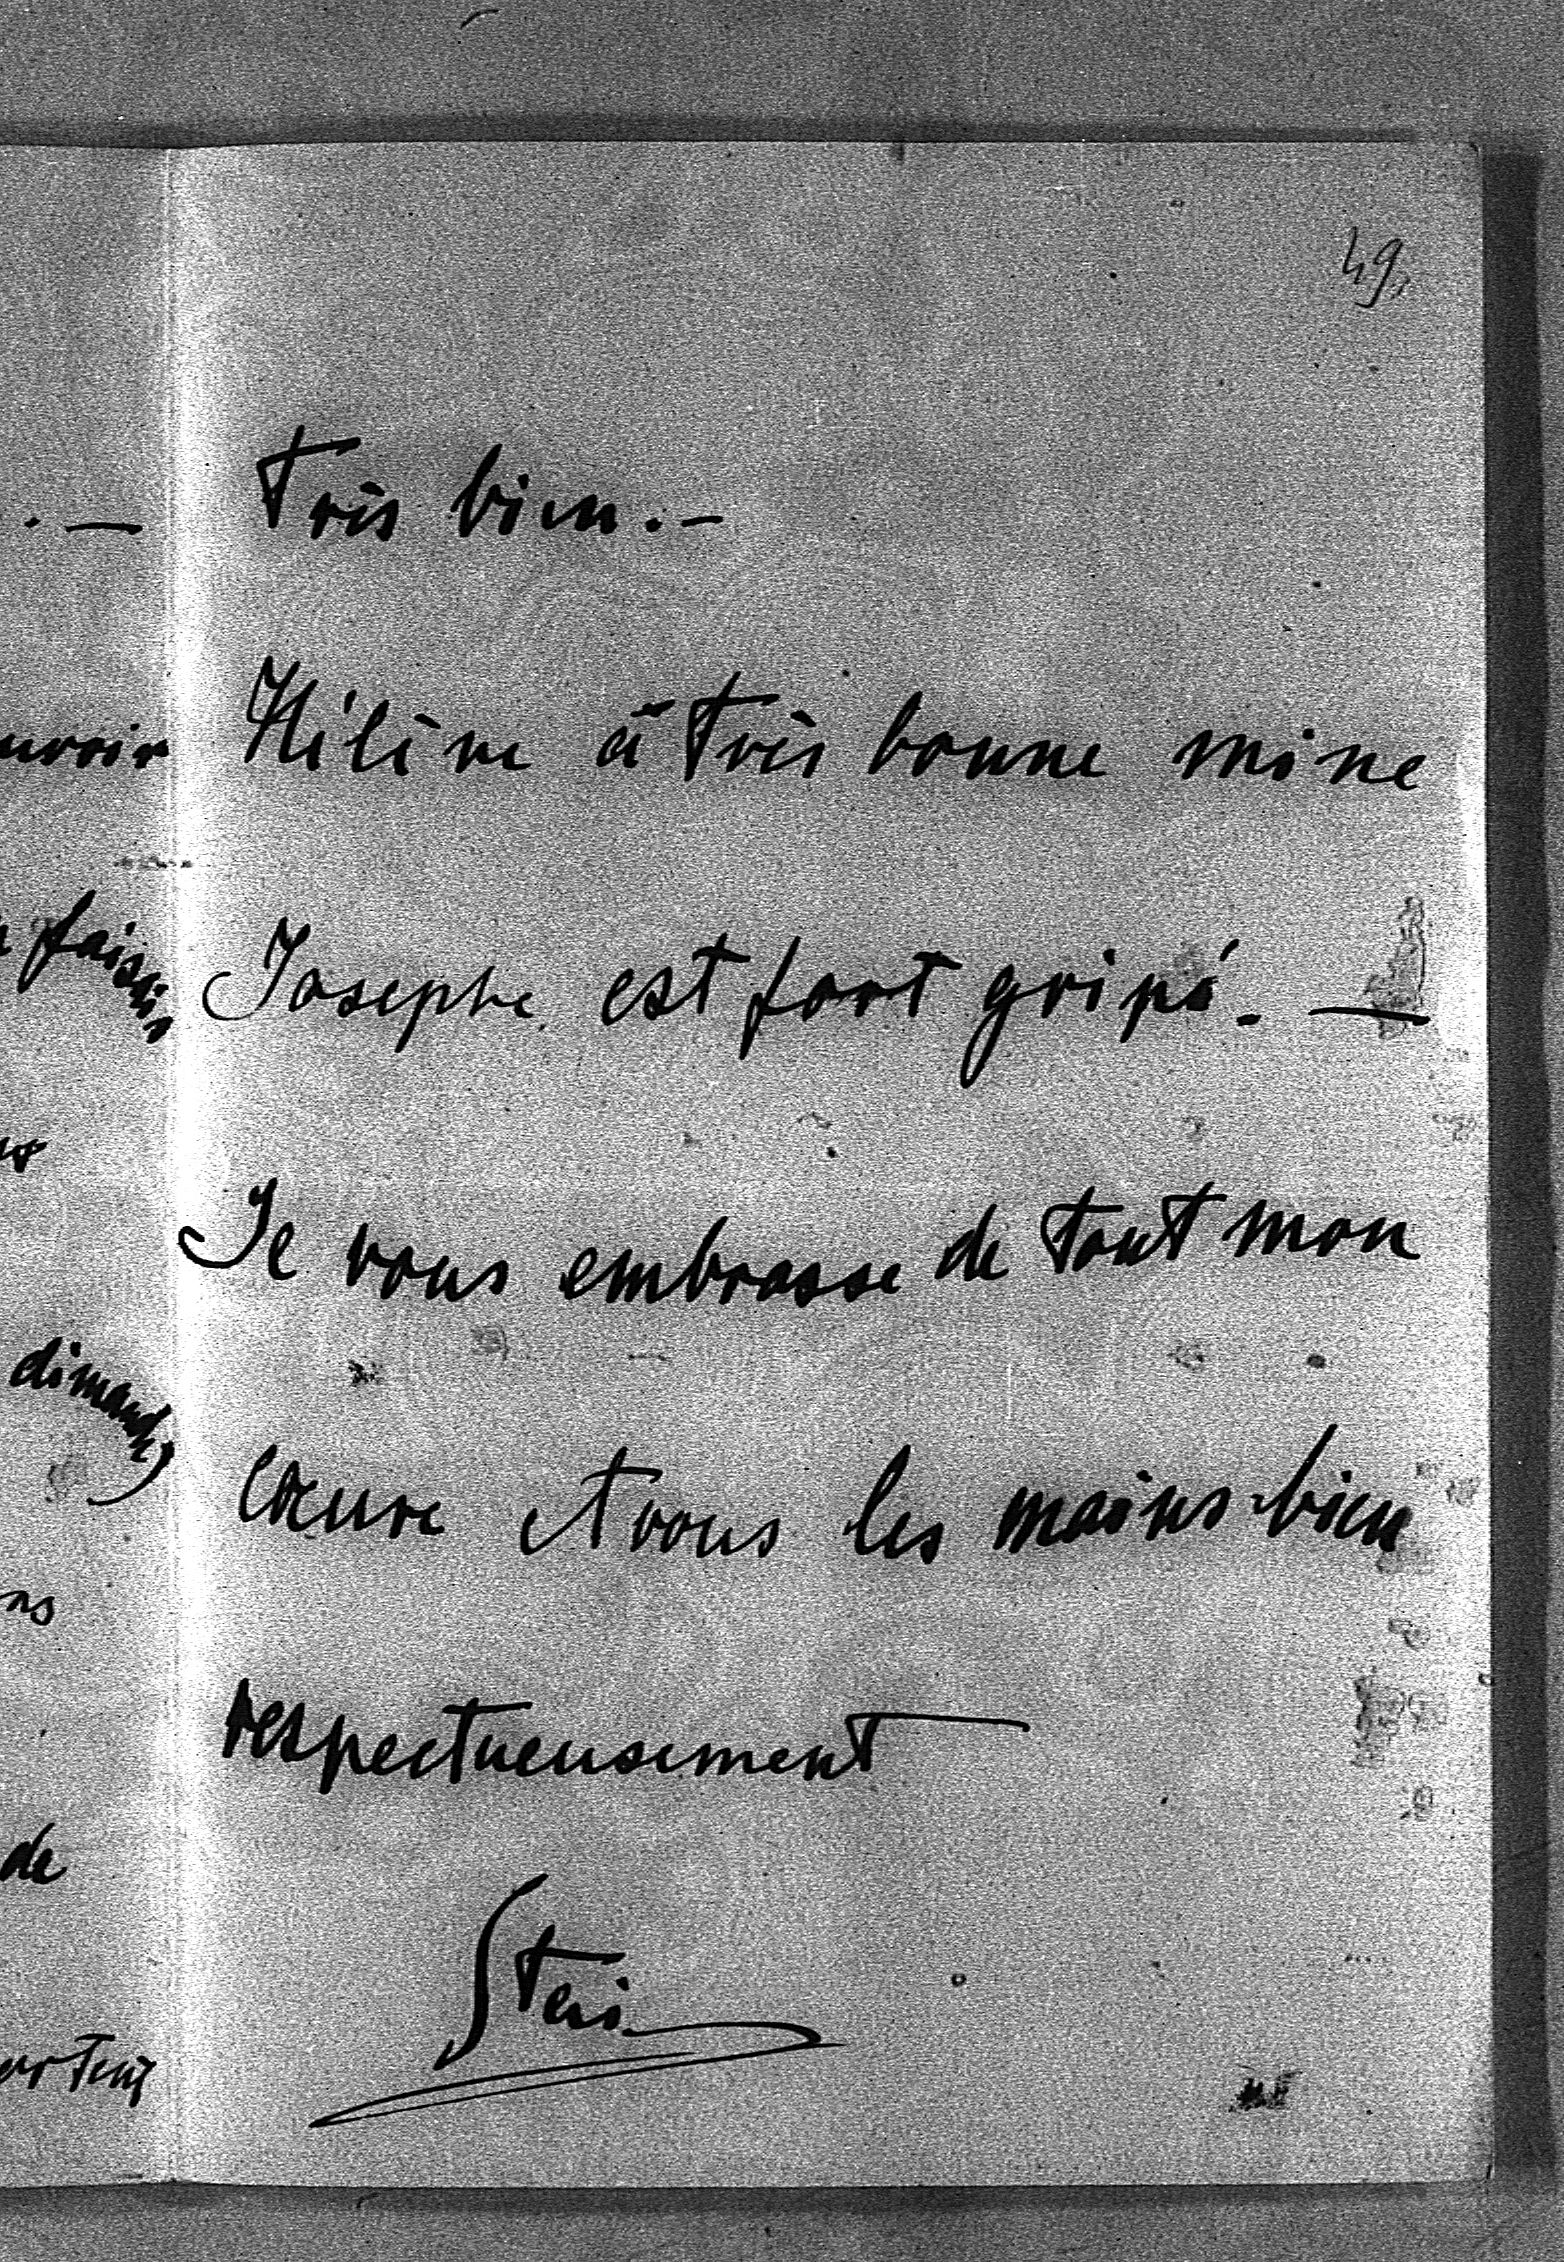 49
. —
très bien. –
Hélène à très bonne mine
faisais
Josephe est fort gripé. —
Je vous embrasse de tout mon
dimanche
cœure et vous les mains bien
respectueusement
de
Stein